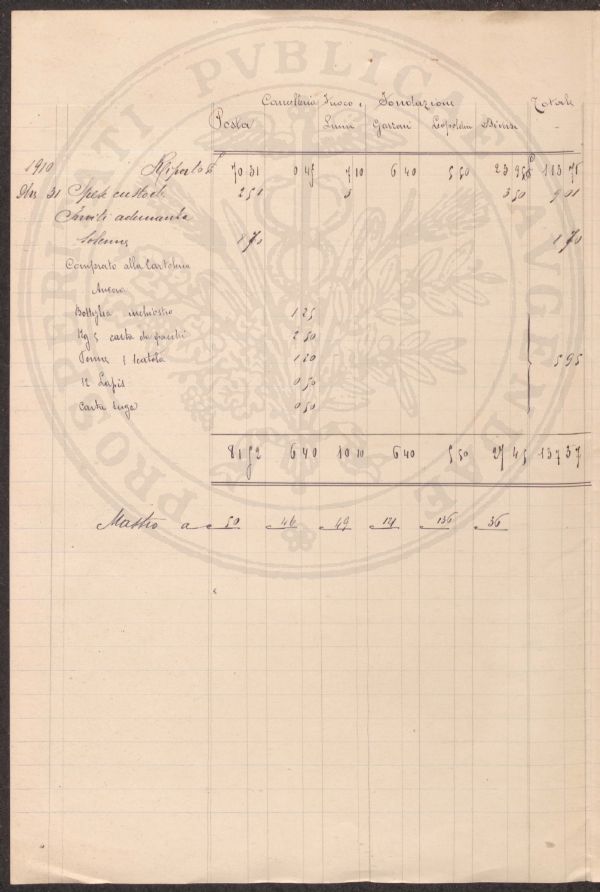 PROSPERITATI PVBLICAE AVGENDAE
Cancelleria Fuoco e Fondazione Totale
Posta Lumi Gazzari Leopoldina Diverse
1910 Riporto £ 70 31 0 45 7 10 6 40 5 50 23 95 113 71
31 Spese custode 2 51 3 3 50 9 01
Inviti adunanza
Solenne 1 70 1 70
Comprato alla Cartoleria
Ancora
Bottiglia inchiostro 1 25
Kg 5 carta da pacchi 2 50
Penne 1 scatola 1 20
12 Lapis 0 50
Carta suga 0 50
5 95
6 40 10 10 6 40 5 50 27 45 137 37
Mastro a c. 50 c. 46 c. 49 c. 121 c. 136 c. 36